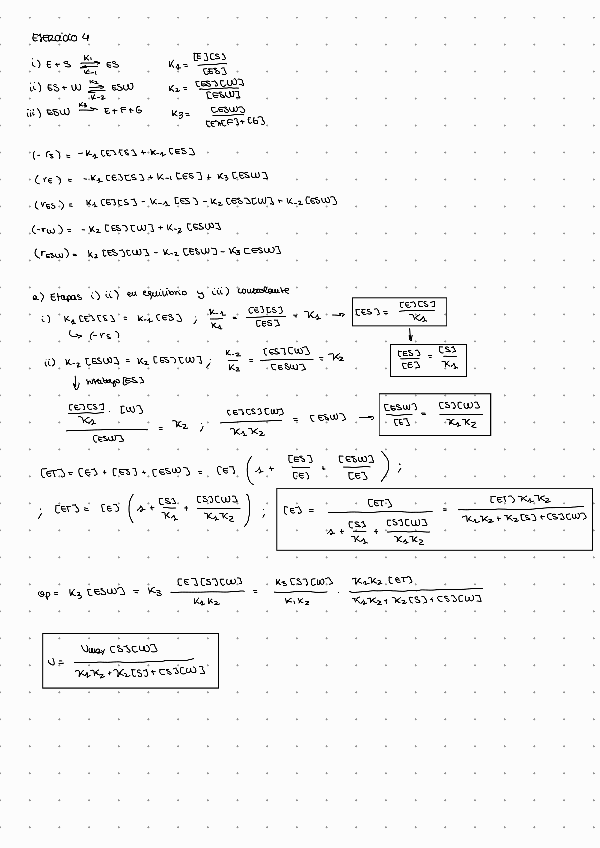 Ejercicio 4
i) E + S ⇌ ES (K1, K-1)   K1 = [E][S] / [ES]
ii) ES + W ⇌ ESW (K2, K-2)   K2 = [ES][W] / [ESW]
iii) ESW → E + F + G (K3)   K3 = [ESW] / [E][F]+[G]
(-rs) = -K1[E][S] + K-1[ES]
(rE) = -K1[E][S] + K-1[ES] + K3[ESW]
(rES) = K1[E][S] - K-1[ES] - K2[ES][W] + K-2[ESW]
(-rW) = -K2[ES][W] + K-2[ESW]
(rESW) = K2[ES][W] - K-2[ESW] - K3[ESW]
a) Etapas i) ii) en equilibrio y iii) controlante
i) K1[E][S] = K-1[ES] ; K-1 / K1 = [E][S] / [ES] = K1 → [ES] = [E][S] / K1
↳ (-rs)
[ES] / [E] = [S] / K1
ii) K-2[ESW] = K2[ES][W] ; K-2 / K2 = [ES][W] / [ESW] = K2
↓ [ES]
([E][S] / K1 · [W]) / [ESW] = K2 ; [E][S][W] / K1K2 = [ESW] → [ESW] / [E] = [S][W] / K1K2
[ET] = [E] + [ES] + [ESW] = [E] (1 + [ES] / [E] + [ESW] / [E]) ;
; [ET] = [E] (1 + [S] / K1 + [S][W] / K1K2) ; [E] = [ET] / (1 + [S] / K1 + [S][W] / K1K2) = [ET] K1K2 / (K1K2 + K2[S] + [S][W])
vp = K3 [ESW] = K3 [E][S][W] / K1K2 = K3[S][W] / K1K2 · K1K2·[ET] / (K1K2 + K2[S] + [S][W])
v = Vmax [S][W] / (K1K2 + K2[S] + [S][W])